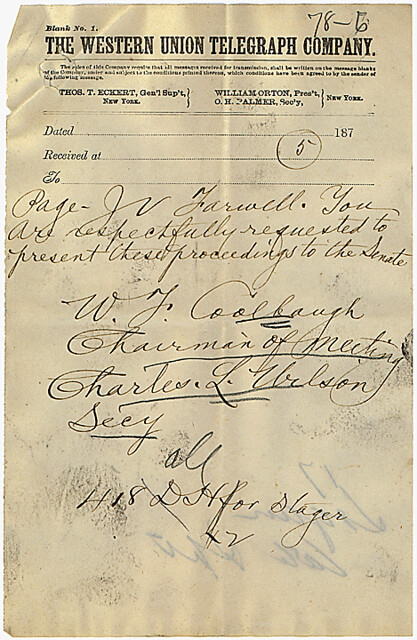 78-6
Blank No. 1.
THE WESTERN UNION TELEGRAPH COMPANY.
The rules of this Company require that all messages received for transmission, shall be written on the message blanks
of the Company, under and subject to the conditions printed thereon, which conditions have been agreed to by the sender of
the following message.
THOS. T. ECKERT, Gen'l Sup't,
NEW YORK.
WILLIAM ORTON, Pres't,
O. H. PALMER, Sec'y,
NEW YORK.
Dated 187
Received at 5
To
Page- J V Farwell. You
are respectfully requested to
present these proceedings to the Senate
W. F. Coolbaugh
Chairman of Meeting
Charles. L. Wilson
Secy
all
418 D H for Stager